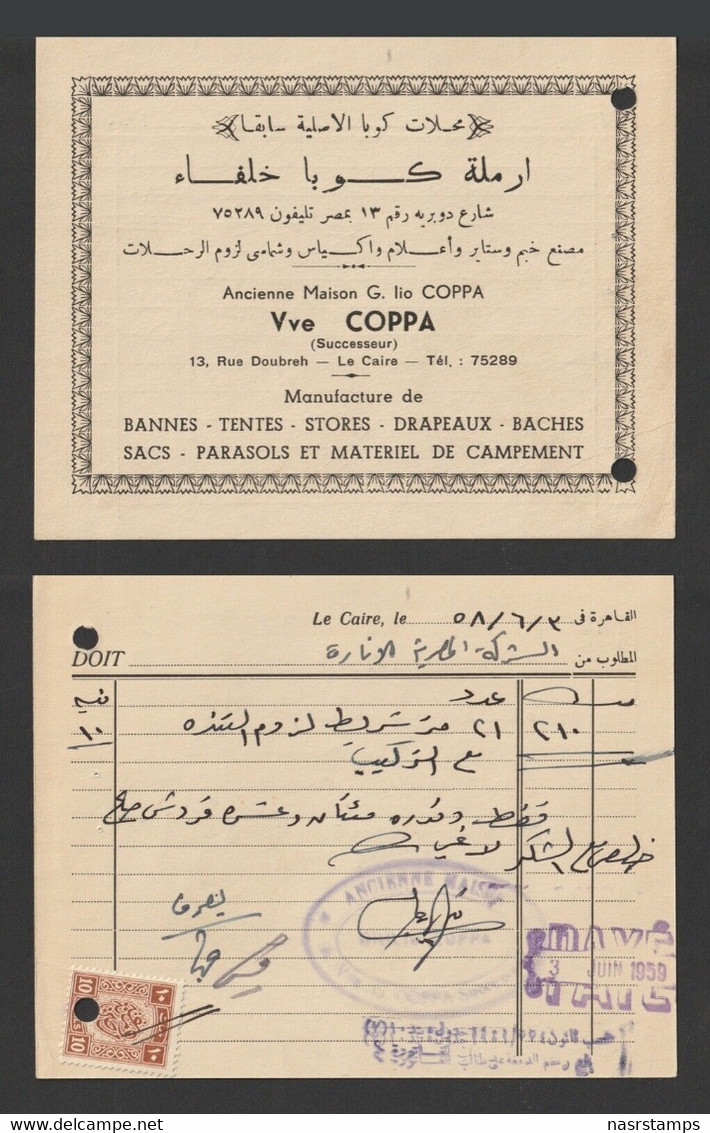 محلات كوبا الاصلية سابقا
ارملة كوبا خلفاء
شارع دوبريه رقم ١٣ بمصر تليفون ٧٥٢٨٩
مصنع خيم وستاير وأعلام واكياس وشماسى لزوم الرحلات
Ancienne Maison G. lio COPPA
Vve COPPA
(Successeur)
13, Rue Doubreh — Le Caire — Tél. : 75289
Manufacture de
BANNES - TENTES - STORES - DRAPEAUX - BACHES
SACS - PARASOLS ET MATERIEL DE CAMPEMENT
Le Caire, le ٥٨/٦/٣ القاهرة فى
DOIT الشركة المصرية المطلوب من
عدد
٢١٠ ٢١ متر شريط لزوم ١٠
مع التركيب
فقط وقدره مئتان وعشرة قروش صاغ
خالص مع الشكر لا غير
ANCIENNE MAISON
COPPA
3 JUIN 1959
10 ١٠
10 ١٠
nasrstamps